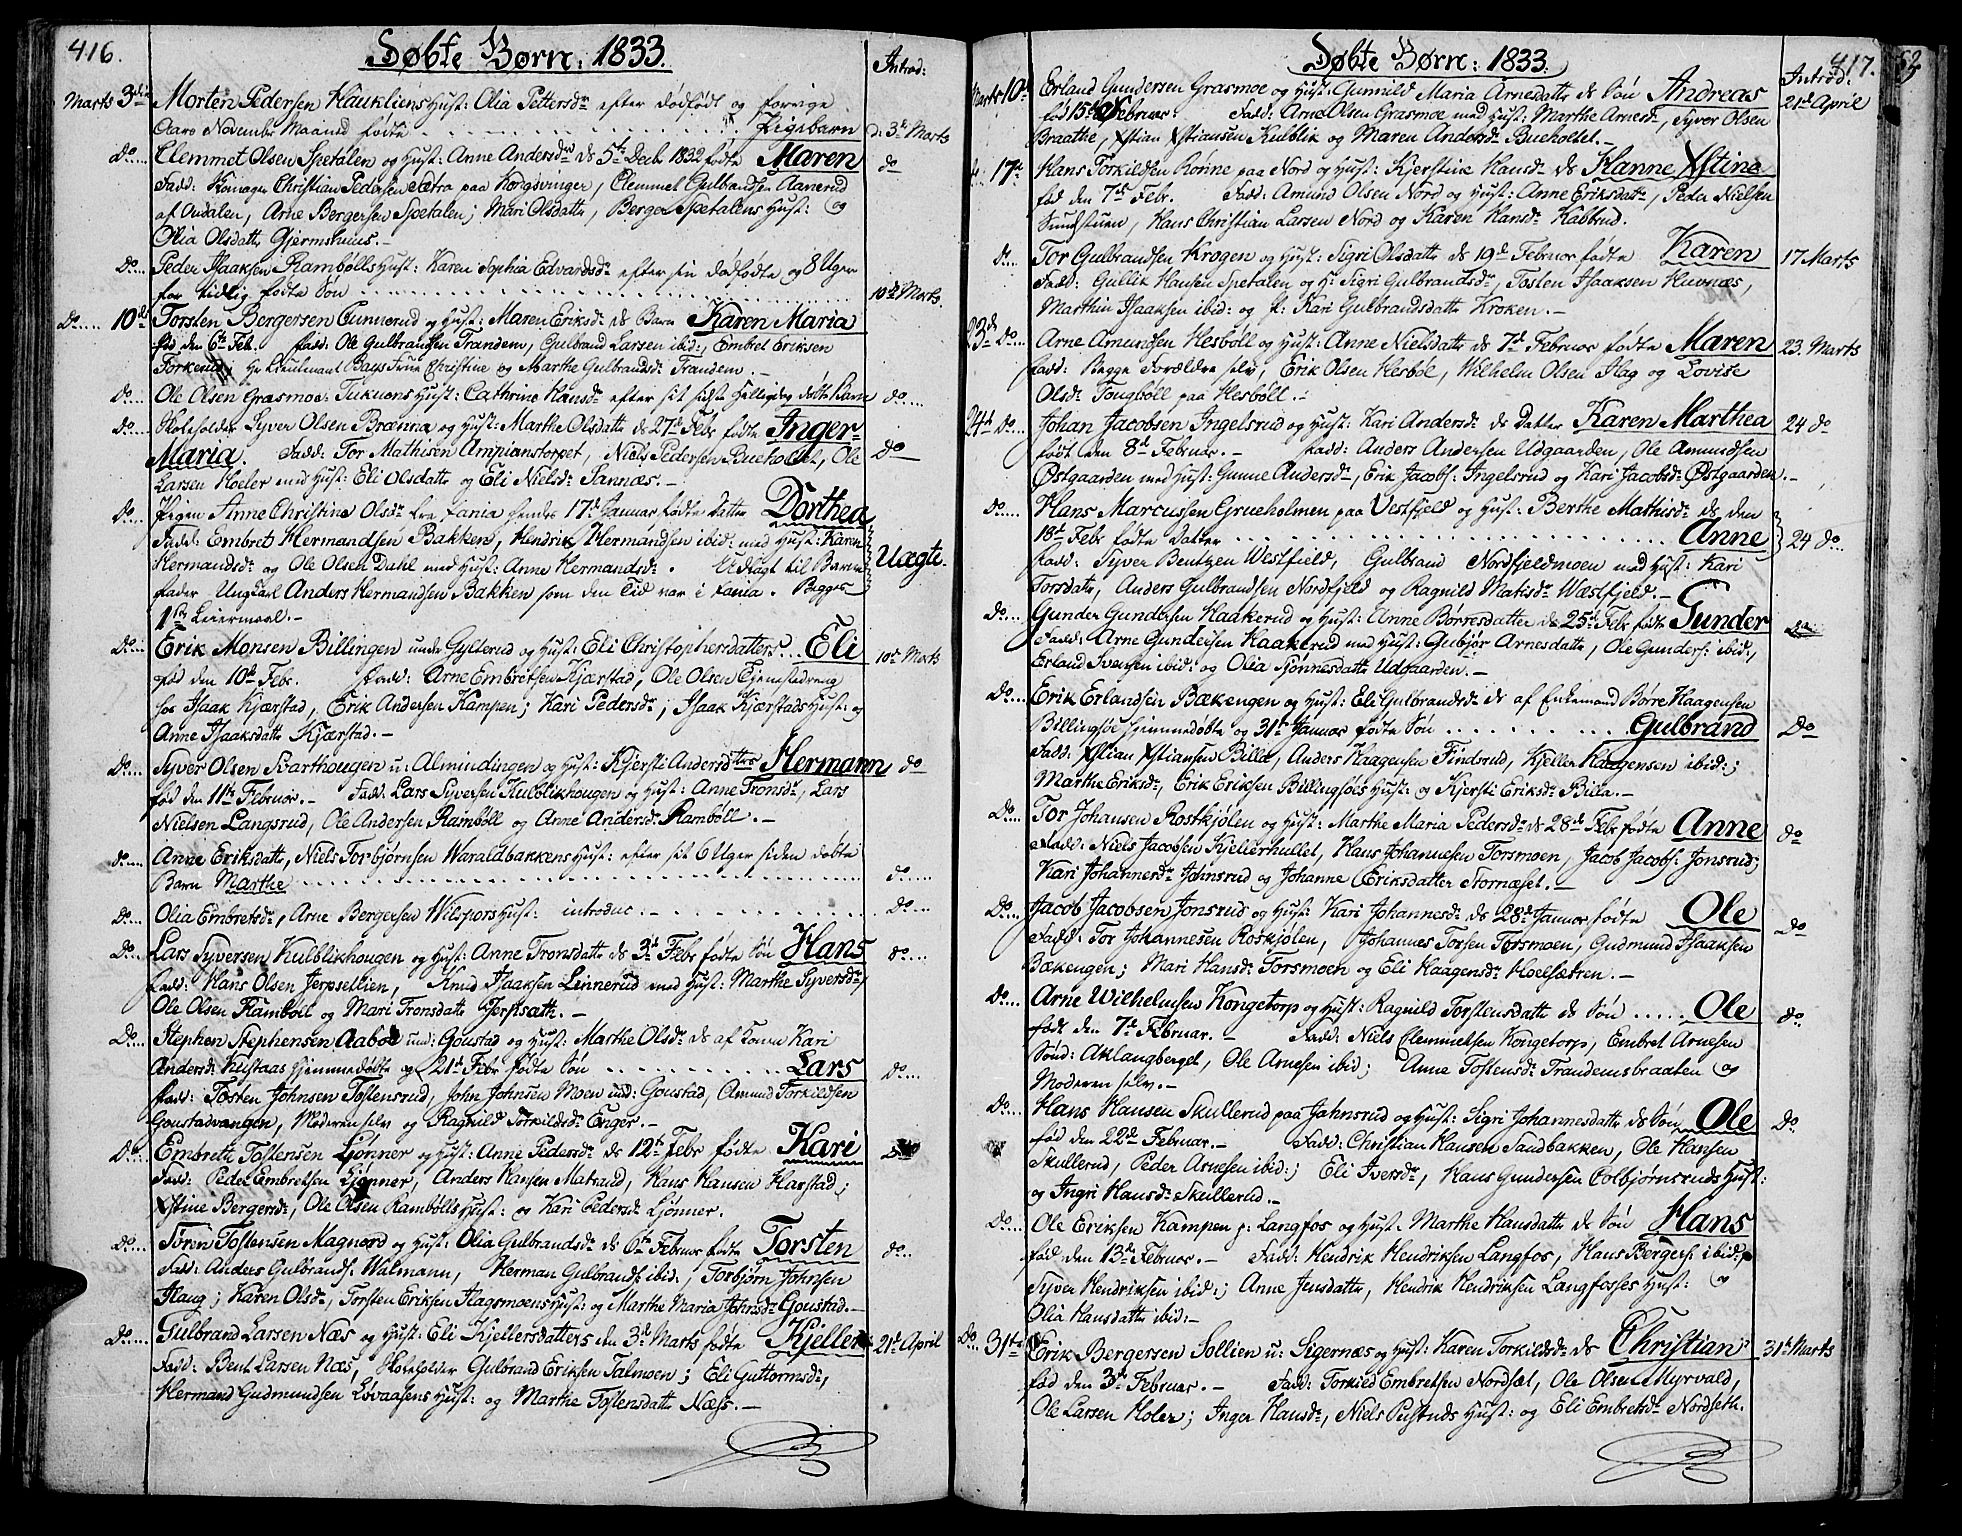 416.
Døbte Børn: 1833.
Introd:
Marts 3die Morten Pedersen Kaukliens Hust: Olia Pettersdr efter dødfødt og forrige
Aars November Maaned fødte . . . Pigebarn d: 3de Marts
Do.... Clemmet Olsen Spetalen og Hust: Anne Andersdr ds 5te Decbr 1832 fødte Maren do
Fadd: Christian Pedersen Sætra paa Kongsvinger, Clemmet Gulbrandsen Aanerud
af Oudalen, Arne Bergersen Spetalen; Mari Olsdatter, Berger Spetalens Hust: og
Olia Olsdatter Gjermshuus.-
Do.... Peder Isaaksen Rambølls Hust: Karen Sophia Edvardsdr efter sin dødfødte og 8 Uger
for tidlig fødte Søn . . . 10de Marts
Do..... 10de Torsten Bergersen Gunnerud og Hust: Maren Eriksdr ds Barn Karen Maria
fød den 6te Feb. Fadd: Ole Gulbrandsen Trandem, Gulbrand Larsen ibid:, Embret Eriksen
Torkerud; Hr Lieutenant Bays Frue Christine og Marthe Gulbrandsdr Trandem.-
do... Ole Olsen Grasmoe: Tukuens Hust: Cathrine Hansdr efter sit sidste Helligdag døbt Barn do....
do... Holeholder Syver Olsen Brænna og Hust: Marthe Olsdatter ds 27de Febr fødte Inger-
Maria. Fadd: Tor Mathisen Ampianstorpet, Niels Pedersen Bueholtet, Ole do
Larsen Hoeler med Hust: Eli Olsdatter og Eli Nielsdr Sannæs.-
do... Pigen Anne Christine Olsdr fra Fania hendes 17de Januar fødte Datter Dorthea
Fadd: Embret Hermandsen Bakken, Hendrik Hermandsen ibid: med Hust: Karen
Hermandsdr og Ole Olsen Dahl med Hust: Anne Hermandsdr. Udlagt til Barne- Uægte.
fader Ungkarl Anders Hermandsen Bakken som den Tid var i Fania. Begges
1ste Leiermaal.-
do... Erik Monsen Billingen under Gyllerud og Hust: Eli Christophersdatters... Eli 10de Marts
fød den 10de Febr. Fadd: Arne Embretsen Kjærstad, Ole Olsen Tjenestedreng
hos Isaak Kjærstad, Erik Andersen Kampen; Kari Pedersdr, Isaak Kjærstads Hust: og
Anne Isaaksdatter Kjærstad.-
Do... Syver Olsen Svarthougen u: Almindingen og Hust: Kjersti Andersdtrs Hermann do
fød den 11te Februar.- Fadd: Lars Syversen Kulblikhougen og Hust: Anne Tronsdr, Lars
Nielsen Langsrud, Ole Andersen Rambøll og Anne Andersdr Rambøll.-
do.... Anne Eriksdatter, Niels Torbjørnsen Waraldbakkens Hust: efter sit 6 Uger siden døbte
Barn Marthe . . . do.....
Do... Olia Embretsdr, Arne Bergersen Wilspors Hust: introduc:- . . . do....
do... Lars Syversen Kulblikhougen og Hust: Anne Tronsdatter ds 3de Febr fødte Søn Hans do....
Fadd: Hans Olsen Jerpsetlien, Knud Isaaksen Linnerud med Hust: Marthe Syversdr,
Ole Olsen Rambøll og Mari Tronsdatter Jerpsæth.-
Do.... Stephen Stephensen Aaboe und: Goustad og Hust: Marthe Olsdr ds af Konen Kari
Andersdr Kulstaas hjemmedøbte og 21de Febr fødte Søn . . . Lars do....
Fadd: Tosten Johnsen Tostensrud, John Johnsen Moen und: Goustad, Amund Torkildsen
Goustadvangen, Moderen selv og Ragnild Torkildsdr Enger.-
Do... Embrett Tostensen Lønner og Hust: Anne Pedersdr ds 12te Febr fødte Kari do
Fadd: Peder Embretsen Lønner, Anders Hansen Matrand, Hans Hansen Harstad;
Xstine Bergersdr, Ole Olsen Rambølls Hust: og Kari Pedersdr Lønner.
do... Sören Tostensen Magnord og Hust: Olia Gulbrandsdr ds 6te Februar fødte Torsten do..
Fadd: Anders Gulbrands: Walmann, Herman Gulbrands: ibid:, Torbjørn Johnsen
Haug; Karen Olsdr, Torsten Eriksen Hagsmoens Hust: og Marthe Maria Johnsdr Goustad.-
do.... Gulbrand Larsen Næs og Hust: Eli Kjellersdatters den 3de Marts fødte Kjeller 21de April
Fadd: Bent Larsen Næs, Holeholder Gulbrand Eriksen Talmoen; Eli Guttormsdr,
Hermand Gudmundsen Lovaasens Hust: og Marthe Tostensdatter Næss.-
417.
Døbte Børn: 1833.
Introd.
Marts 10de Erland Gundersen Grasmoe og Hust: Gunnild Maria Arnesdatter ds Søn Andreas 21de April
fød 15de Februar: Fadd: Arne Olsen Grasmoe med Hust: Marthe Arnesdr, Syver Olsen
Braathe, Xstian Xstiansen Kulblik og Maren Andersdr Bueholtet.-
17de Hans Torkildsen Rønne paa Nord og Hust: Kjerstine Hansdr ds Hanne Xstine
fød den 7de Febr. Fadd: Amund Olsen Nord og Hust: Anne Eriksdatr, Peder Nielsen
Sundstuen, Hans Christian Larsen Nord og Karen Hansdr Kabbrud.
do... Tor Gulbrandsen Krogen og Hust: Sigri Olsdatter ds 19de Februar fødte Karen 17 Marts
Fadd: Gullik Hansen Spetalen og H: Sigri Gulbrandsdr, Tosten Isaaksen Huvnæs,
Marthin Isaaksen ibid: og P: Kari Gulbrandsdatter Kroken.-
23de Do... Arne Amundsen Hesbøll og Hust: Anne Nielsdatter ds 7de Februar fødte Maren 23. Marts
Fadd: Begge Forældre selv, Erik Olsen Hesbøl, Wilhelm Olsen Hag og Lovise
Olsdr Tougbøll paa Hesbøll.-
24de Do... Johan Jacobsen Ingelsrud og Hust: Kari Andersdr ds Datter Karen Marthea 24 do
født den 8de Februar.- Fadd: Anders Andersen Udgaarden, Ole Amundsen
Østgaarden med Hust: Gunne Andersdr, Erik Jacobs: Ingelsrud og Kari Jacobsdr Østgaarden.-
Do.... Hans Marcussen Grueholmen paa Vestfjeld og Hust: Berthe Mathisdr ds den
18de Febr fødte Datter . . . Anne 24 do...
Fadd: Syver Bentzen Westfield, Gulbrand Nordfjeldmoen med Hust: Kari
Torsdatr, Anders Gulbrandsen Nordfjeld og Ragnild Matisdr Wæstfjeld.-
Do... Gunder Gundersen Haakerud og Hust: Anne Børresdatter ds 25de Febr fødte Gunder do
Fadd: Arne Gundersen Haakerud med Hust: Gubjør Arnesdatter, Ole Gunders: ibid:,
Erland Svensen ibid: og Olia Sjonnesdatter Udgaarden.-
Do... Erik Erlandsen Bækengen og Hust: Eli Gulbrandsdr ds af Enkemand Børre Haagensen
Billingsøe hjemmedøbte og 31te Januar fødte Søn . . . Gulbrand Do
Fadd: Xstian Xstiansen Billa, Anders Haagensen Findsrud, Kjeller Haagensen ibid:;
Marthe Eriksdr, Erik Eriksen Billingsøes Hust: og Kjersti Eriksdr Billa.-
Do.... Tor Johansen Rostkjølen og Hust: Marthe Maria Pedersdr ds 28de Febr fødte Anne do
Fadd: Niels Jacobsen Kjellerhullet, Hans Johannesen Torsmoen, Jacob Jacobs: Jonsrud;
Kari Johannesdr Johnsrud og Johanne Eriksdatter Stornæset.-
Do... Jacob Jacobsen Jonsrud og Hust: Kari Johannesdr ds 28de Januar fødte Ole do
Fadd: Tor Johannesen Roskjølen, Johannes Torsen Torsmoen, Gudmund Isaaksen
Bækengen; Mari Hansdr Torsmoen og Eli Haagensdr Hoelsætren.-
Do... Arne Wilhelmsen Kongetorp og Hust: Ragnild Torstensdatter ds Søn ..... Ole do
født den 7de Februar.- Fadd: Niels Clemmetsen Kongetorp, Embret Arnesen
Sönd: Aklangberget, Ole Arnesen ibid; Anne Tostensdr Trandemsbraaten og
Moderen selv.-
Do.... Hans Hansen Skullerud paa Jahnsrud og Hust: Sigri Johannesdatter ds Søn Ole do
fød den 22de Februar.- Fadd: Christian Hansen Sandbakken, Ole Hansen
Skullerud, Peder Arnesen ibid:; Eli Iversdr, Hans Gundersen Colbjørnsruds Hust:
og Ingri Hansdr Skullerud.-
Do... Ole Eriksen Kampen p: Langfos og Hust: Marthe Hansdatter ds Søn Hans
fød den 13de Februar.- Fadd: Hendrik Hendriksen Langfos, Hans Bergers: ibid:,
Syver Hendriksen ibid:; Anne Jensdatter, Hendrik Hendriksen Langfosses Hust: og
Olia Hansdatter ibid:-
Do... 31te Erik Bergersen Sollien u: Sigernæs og Hust: Karen Torkildsdr ds Christian 31te Marts
fød den 3de Februar.- Fadd: Torkild Embretsen Nordsæt, Ole Olsen Myrvald,
Ole Larsen Holer; Inger Hansdr, Niels Hust: og Eli Embretsdr Nordseth.